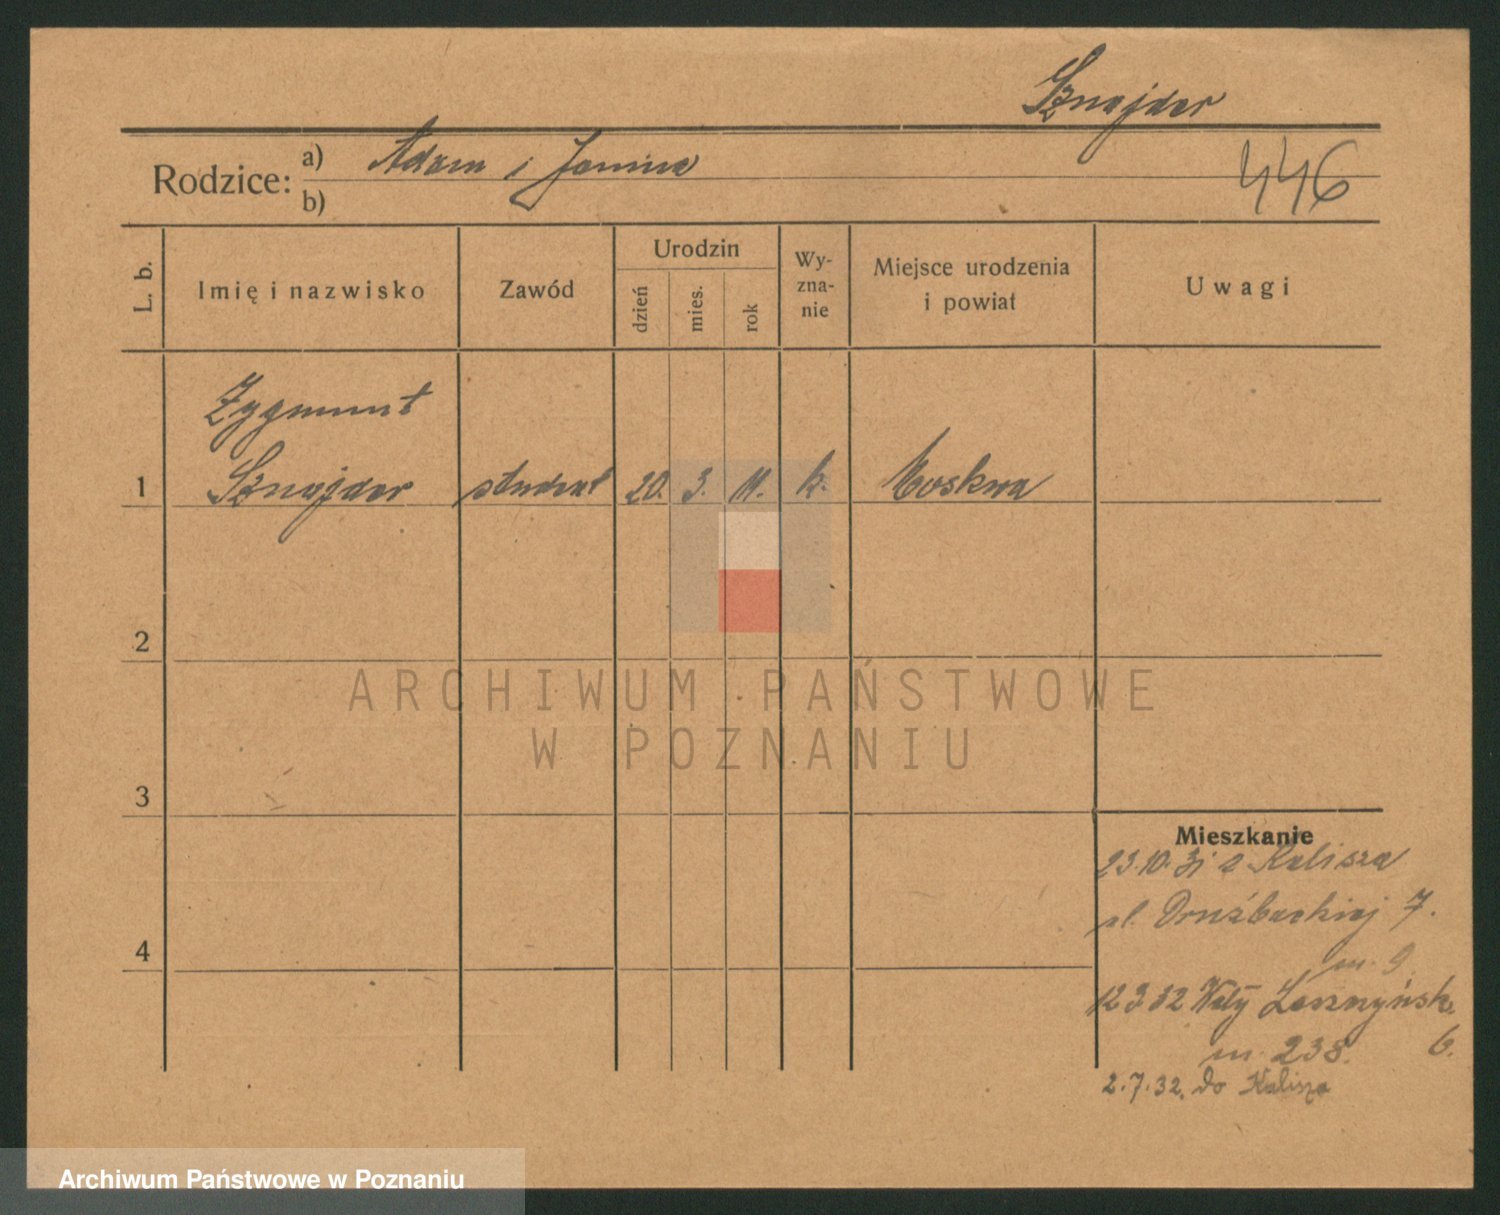 Sznajder
446
Rodzice: a) Adam i Janina
b)
L. b.
Imię i nazwisko
Zawód
Urodzin
dzień
mies.
rok
Wy-
zna-
nie
Miejsce urodzenia
i powiat
Uwagi
Zygmunt
1 Sznajder student 20. 3. 11. k. Moskwa
2
ARCHIWUM PAŃSTWOWE
W POZNANIU
3
Mieszkanie
23.10.31 z Kalisza
ul. Drużbackiej 7.
m. 9
4
12 3 32 Wały Leszczyńsk.
m. 238. 6.
2.7.32. do Kalisza
Archiwum Państwowe w Poznaniu